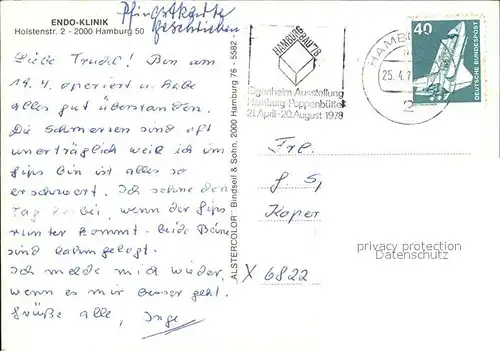 ENDO-KLINIK
Holstenstr. 2 - 2000 Hamburg 50
Liebe Trudel! Bin am
19.4. operiert u. habe
alles gut überstanden.
Die Schmerzen sind oft
unerträglich weil ich im
Gips bin ist alles so
erschwert. Ich sehne den
Tag herbei, wenn der Gips
runter kommt - beide Beine
sind lahmgelegt.
Ich melde mich wieder,
wenn es mir besser geht.
Grüße alle, Inge
"ALSTERCOLOR" Bindseil & Sohn, 2000 Hamburg 76 - 5582 -
HAMBURG BAU '78
Eigenheim Ausstellung
Hamburg-Poppenbüttel
21. April - 20. August 1978
HAMBU
25.4.7
2
40
DEUTSCHE BUNDESPOST
Frl.
G. S,
Koper
X 6822
privacy protection
Datenschutz